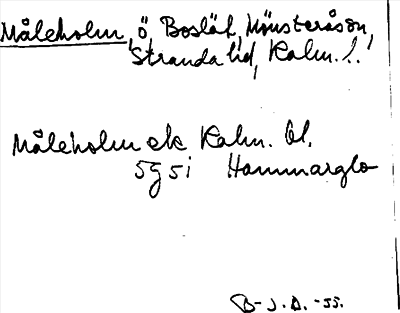 Måleholm, ö, Boslät, Mönsterås sn,
Stranda hd, Kalm. l.
Måleholm ek Kalm. bl.
5g5i Hammarglo
B-J.A. -55.